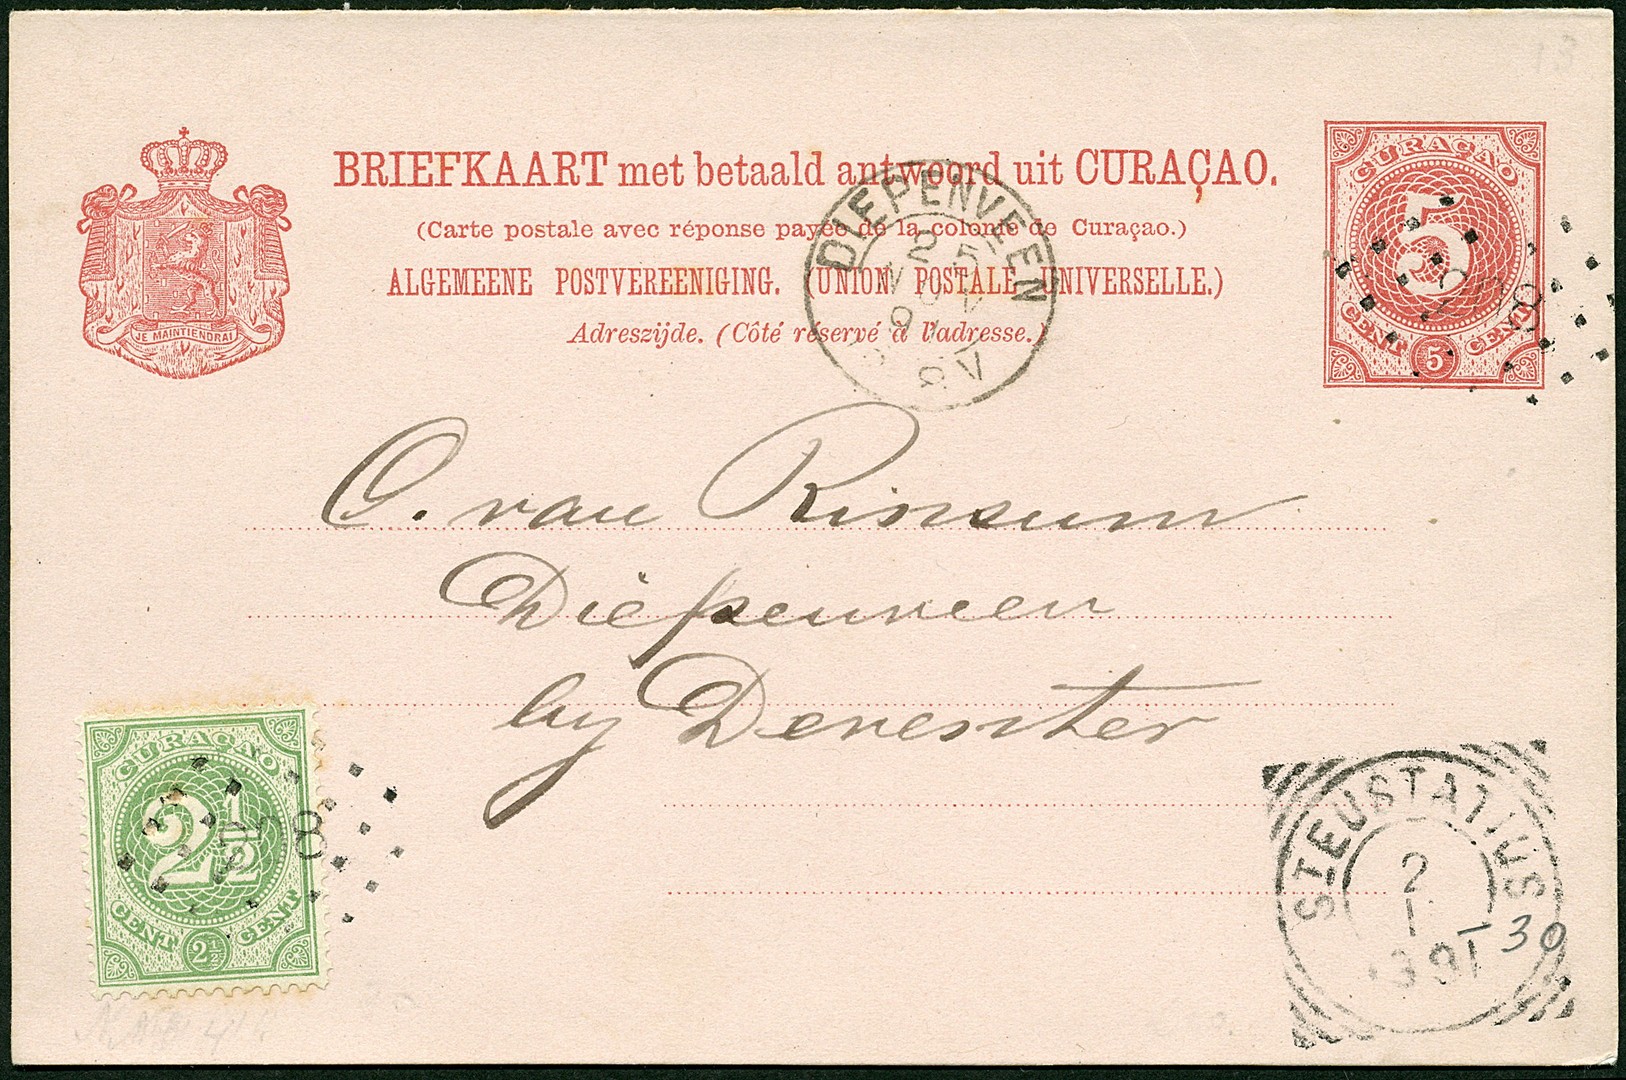 BRIEFKAART met betaald antwoord uit CURAÇAO.
(Carte postale avec réponse payée de la colonie de Curaçao.)
ALGEMEENE POSTVEREENIGING. (UNION POSTALE UNIVERSELLE.)
Adreszijde. (Côté réservé à l'adresse.)
JE MAINTIENDRAI
CURAÇAO
5
CENT 5 CENT
208
DIEPENVEEN
25
NOV
9
8V
C. van Rinsum
Diepenveen
by Deventer
CURAÇAO
2½
CENT 2½ CENT
208
ST EUSTATIUS
2
1
91
30
13